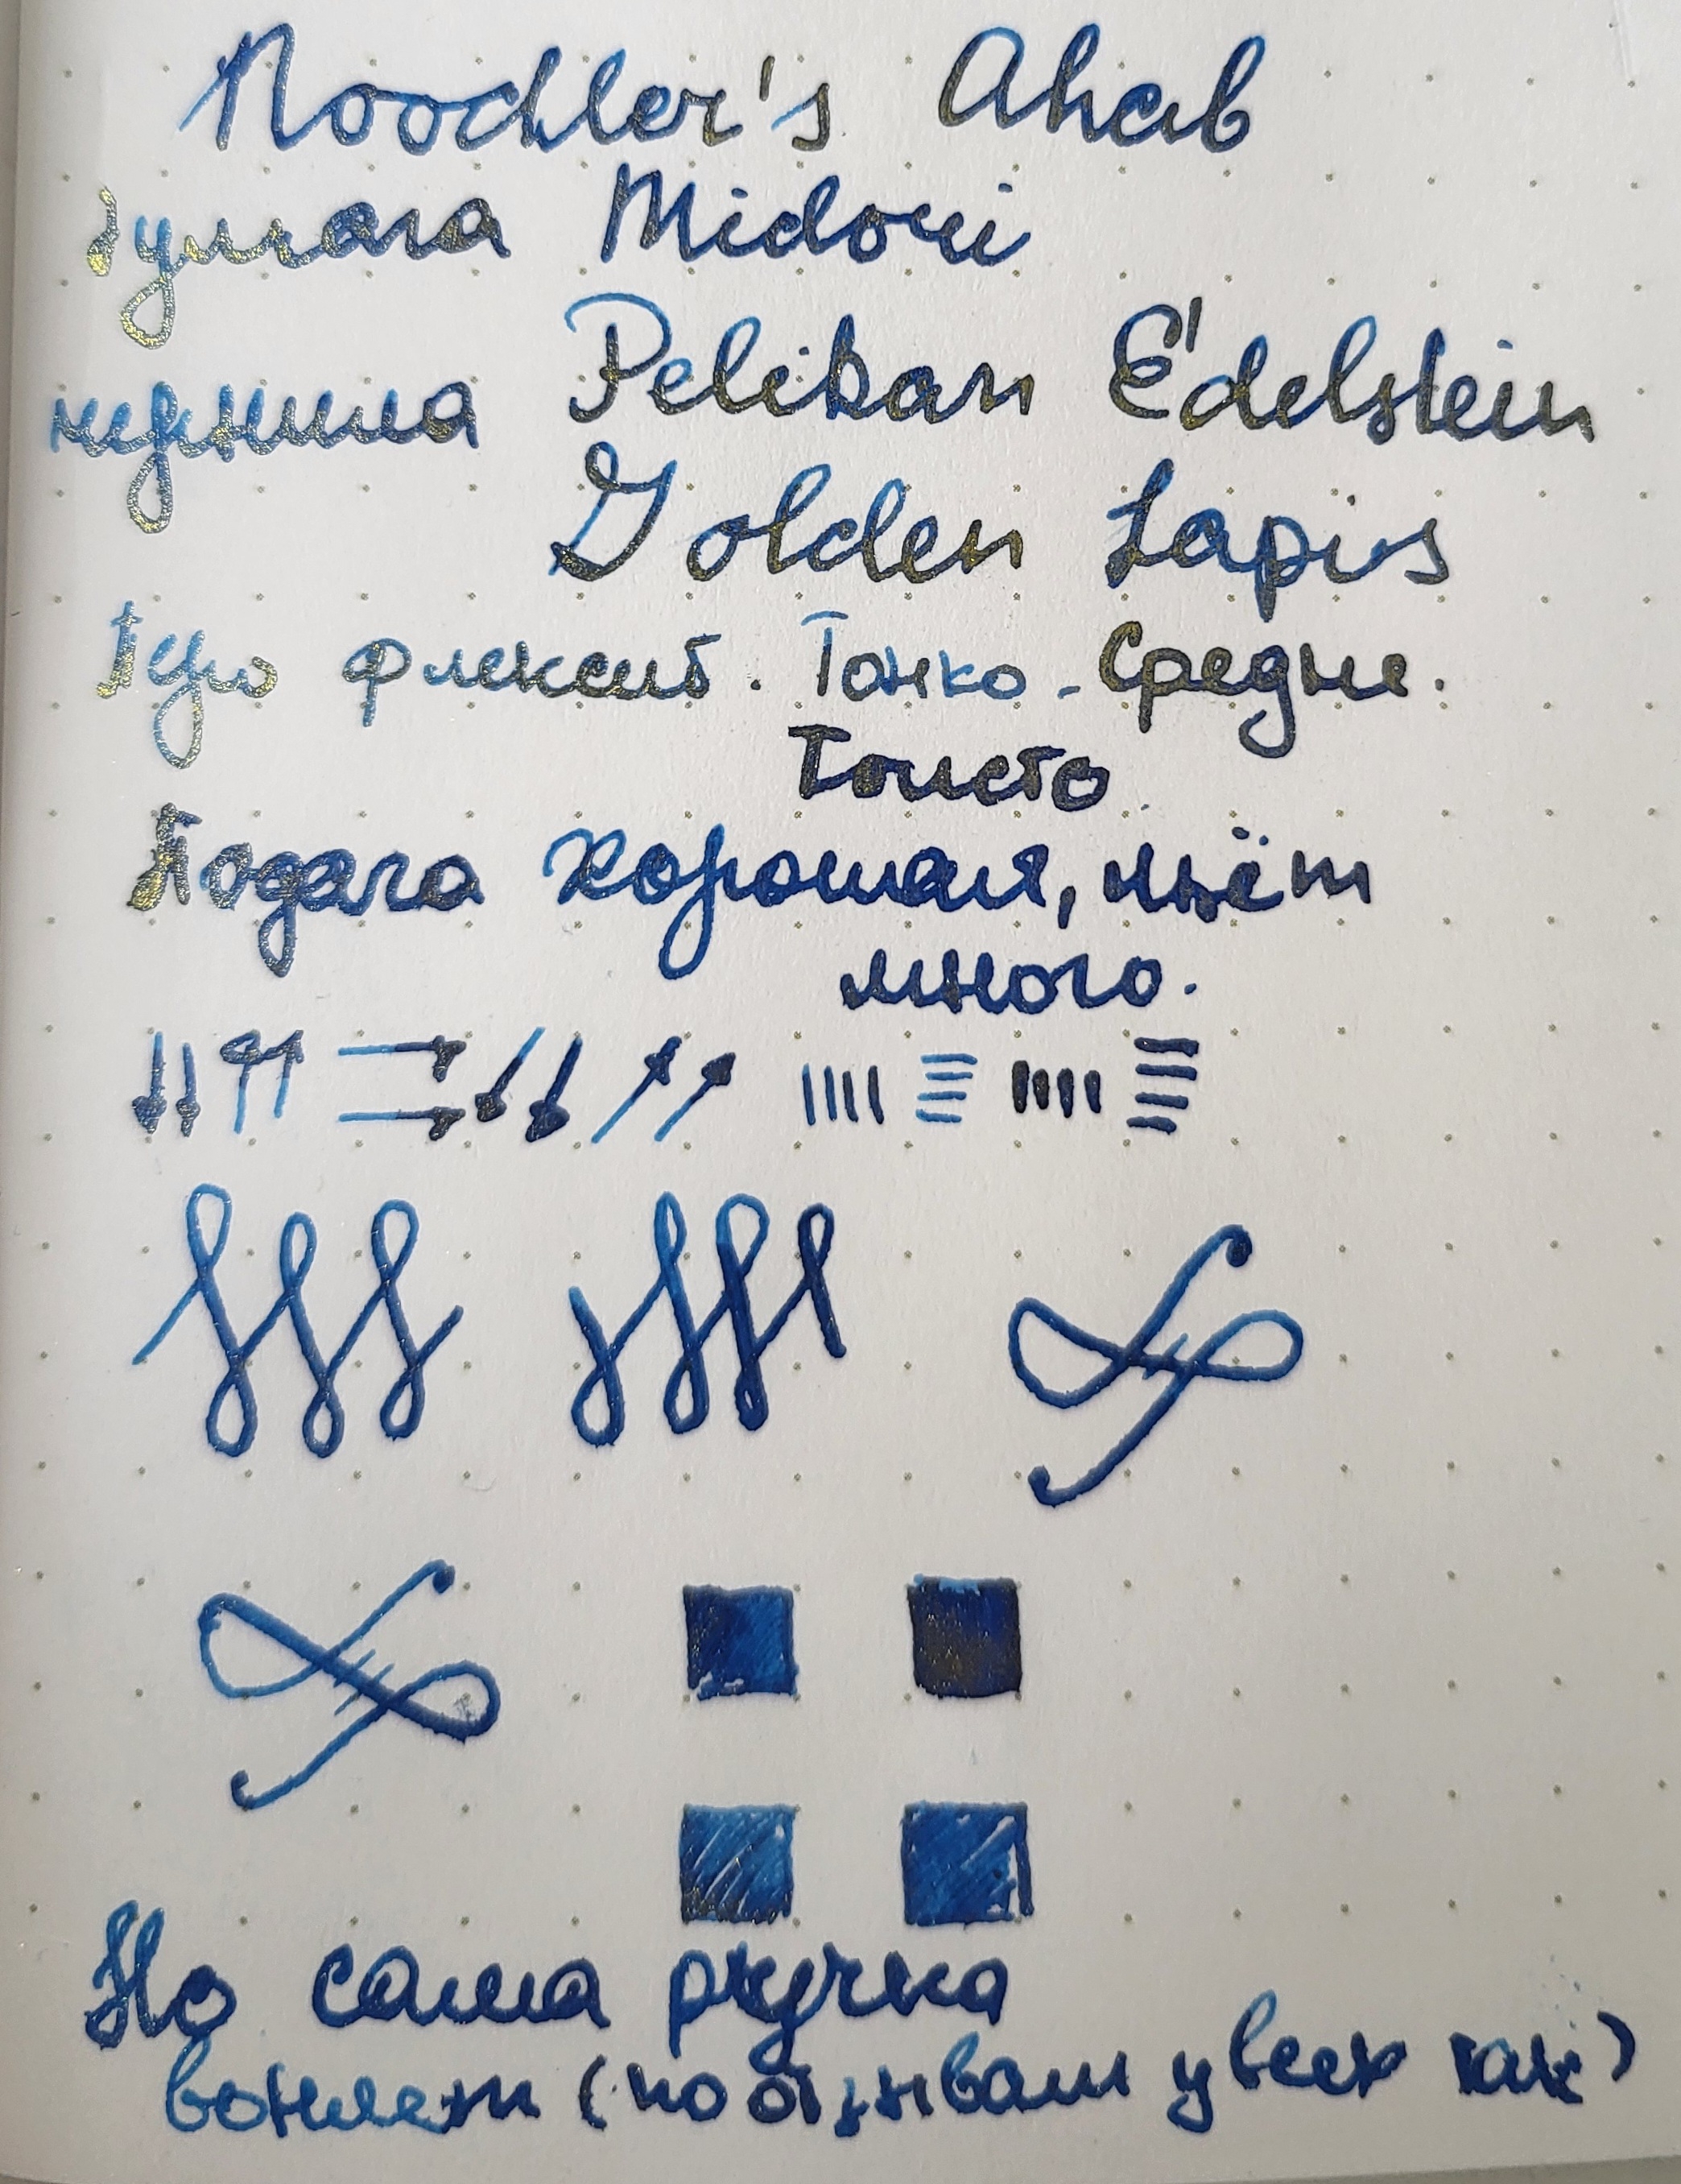 Noodler's Ahab
бумага Midori
чернила Pelikan Edelstein
Golden Lapis
Перо флексиб. Тонко - Средне.
Толсто
Подача хорошая, льёт
много.
Но сама ручка
воняет (по отзывам у всех так)